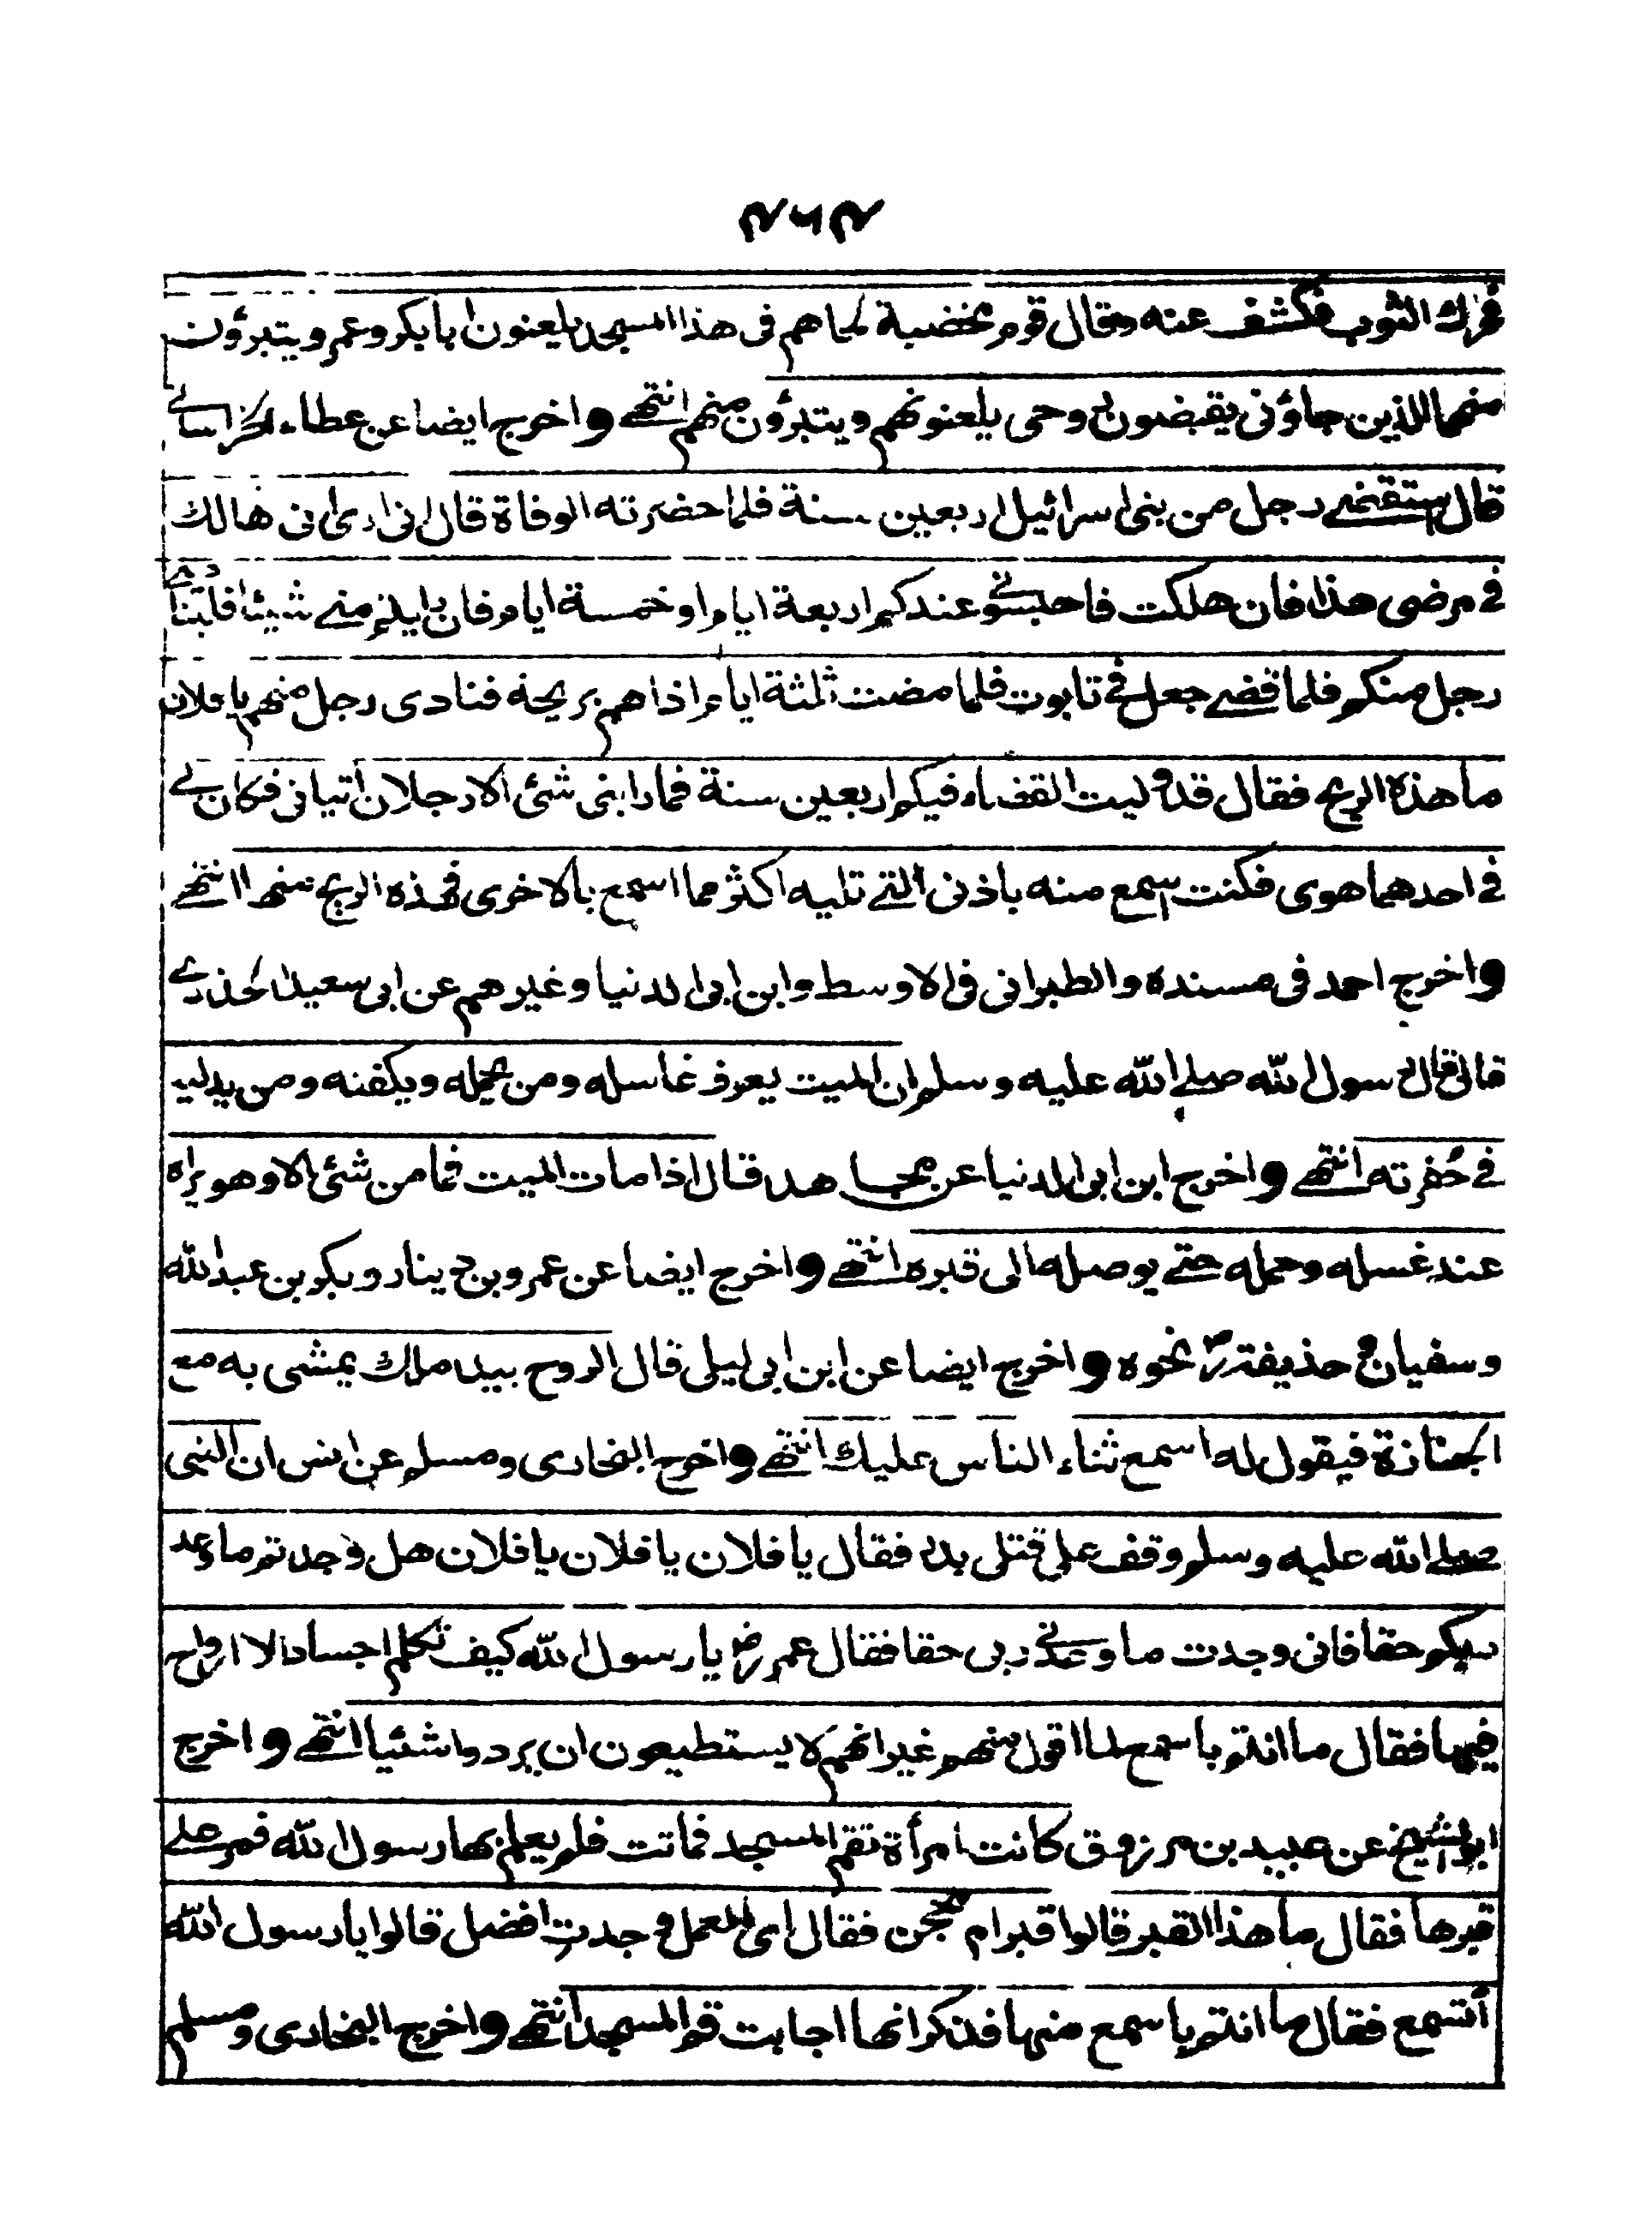 ۴۶۴
فحرك الثوب فكشف عنه وقال قوم مخضبة لحاهم فى هذا المسجد يلعنون ابا بكر و عمر و يتبرؤن
منهما الذين جاؤنى يقبضون روحى يلعنونهم و يتبرؤن منهم انتهے و اخرج ايضا عن عطاء الخراسانے
قال استقضے رجل من بنى اسرائيل اربعين سنة فلما حضرته الوفاة قال انى ارى انى هالك
فے مرضى هذا فان هلكت فاحبسونے عندكم اربعة ايام او خمسة ايام فان رايتم منے شيئا فلينادنے
رجل منكم فلما قضے جعل فے تابوت فلما مضت ثلثة ايام اذا هم بريحه فنادى رجل منهم يا فلان
ما هذه الريح فقال قد وليت القضاء فيكم اربعين سنة فما رابنى شئ الا رجلان اتيانى فكان لے
فے احدهما هوى فكنت اسمع منه باذنى التے تليه اكثر مما اسمع بالاخرى فهذه الريح منها انتهے
و اخرج احمد فى مسنده و الطبرانى فى الاوسط و ابن ابى الدنيا و غيرهم عن ابى سعيد الخدرے
قال قال رسول الله صلے الله عليه و سلم ان الميت يعرف غاسله و من يحمله و يكفنه و من يدليه
فے حُفرته انتهے و اخرج ابن ابى الدنيا عن مجاهد قال اذا مات الميت فما من شئ الا و هو يراه
عند غسله و حمله حتے يوصله الى قبره انتهے و اخرج ايضا عن عمرو بن دينار و بكر بن عبد الله
و سفيان و حذيفة رض نحوه و اخرج ايضا عن ابن ابى ليلى قال الروح بيد ملك يمشى به مع
الجنازة فيقول له اسمع ثناء الناس عليك انتهے و اخرج البخارى و مسلم عن انس ان النبى
صلے الله عليه و سلم وقف على قتلى بدر فقال يا فلان يا فلان يا فلان هل وجدتم ما وعد
ربكم حقا فانى وجدت ما وعدنے ربى حقا فقال عمر رض يا رسول الله كيف تكلم اجسادا لا ارواح
فيها فقال ما انتم باسمع لما اقول منهم غير انهم لا يستطيعون ان يردوا شئيا انتهے و اخرج
ابو الشيخ عن عبيد بن مرزوق كانت امرأة تقم المسجد فماتت فلم يعلم بها رسول الله فمر علے
قبرها فقال ما هذا القبر قالوا قبر ام محجن فقال اى العمل وجدتِ افضل قالوا يا رسول الله
أتسمع فقال ما انتم باسمع منها فذكر انها اجابت قم المسجد انتهے و اخرج البخارى و مسلم